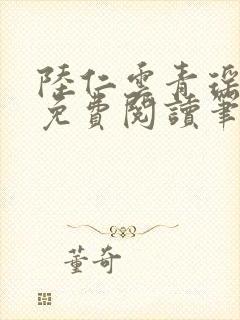 陸仁雲青瑶
免費閱讀筆
董奇